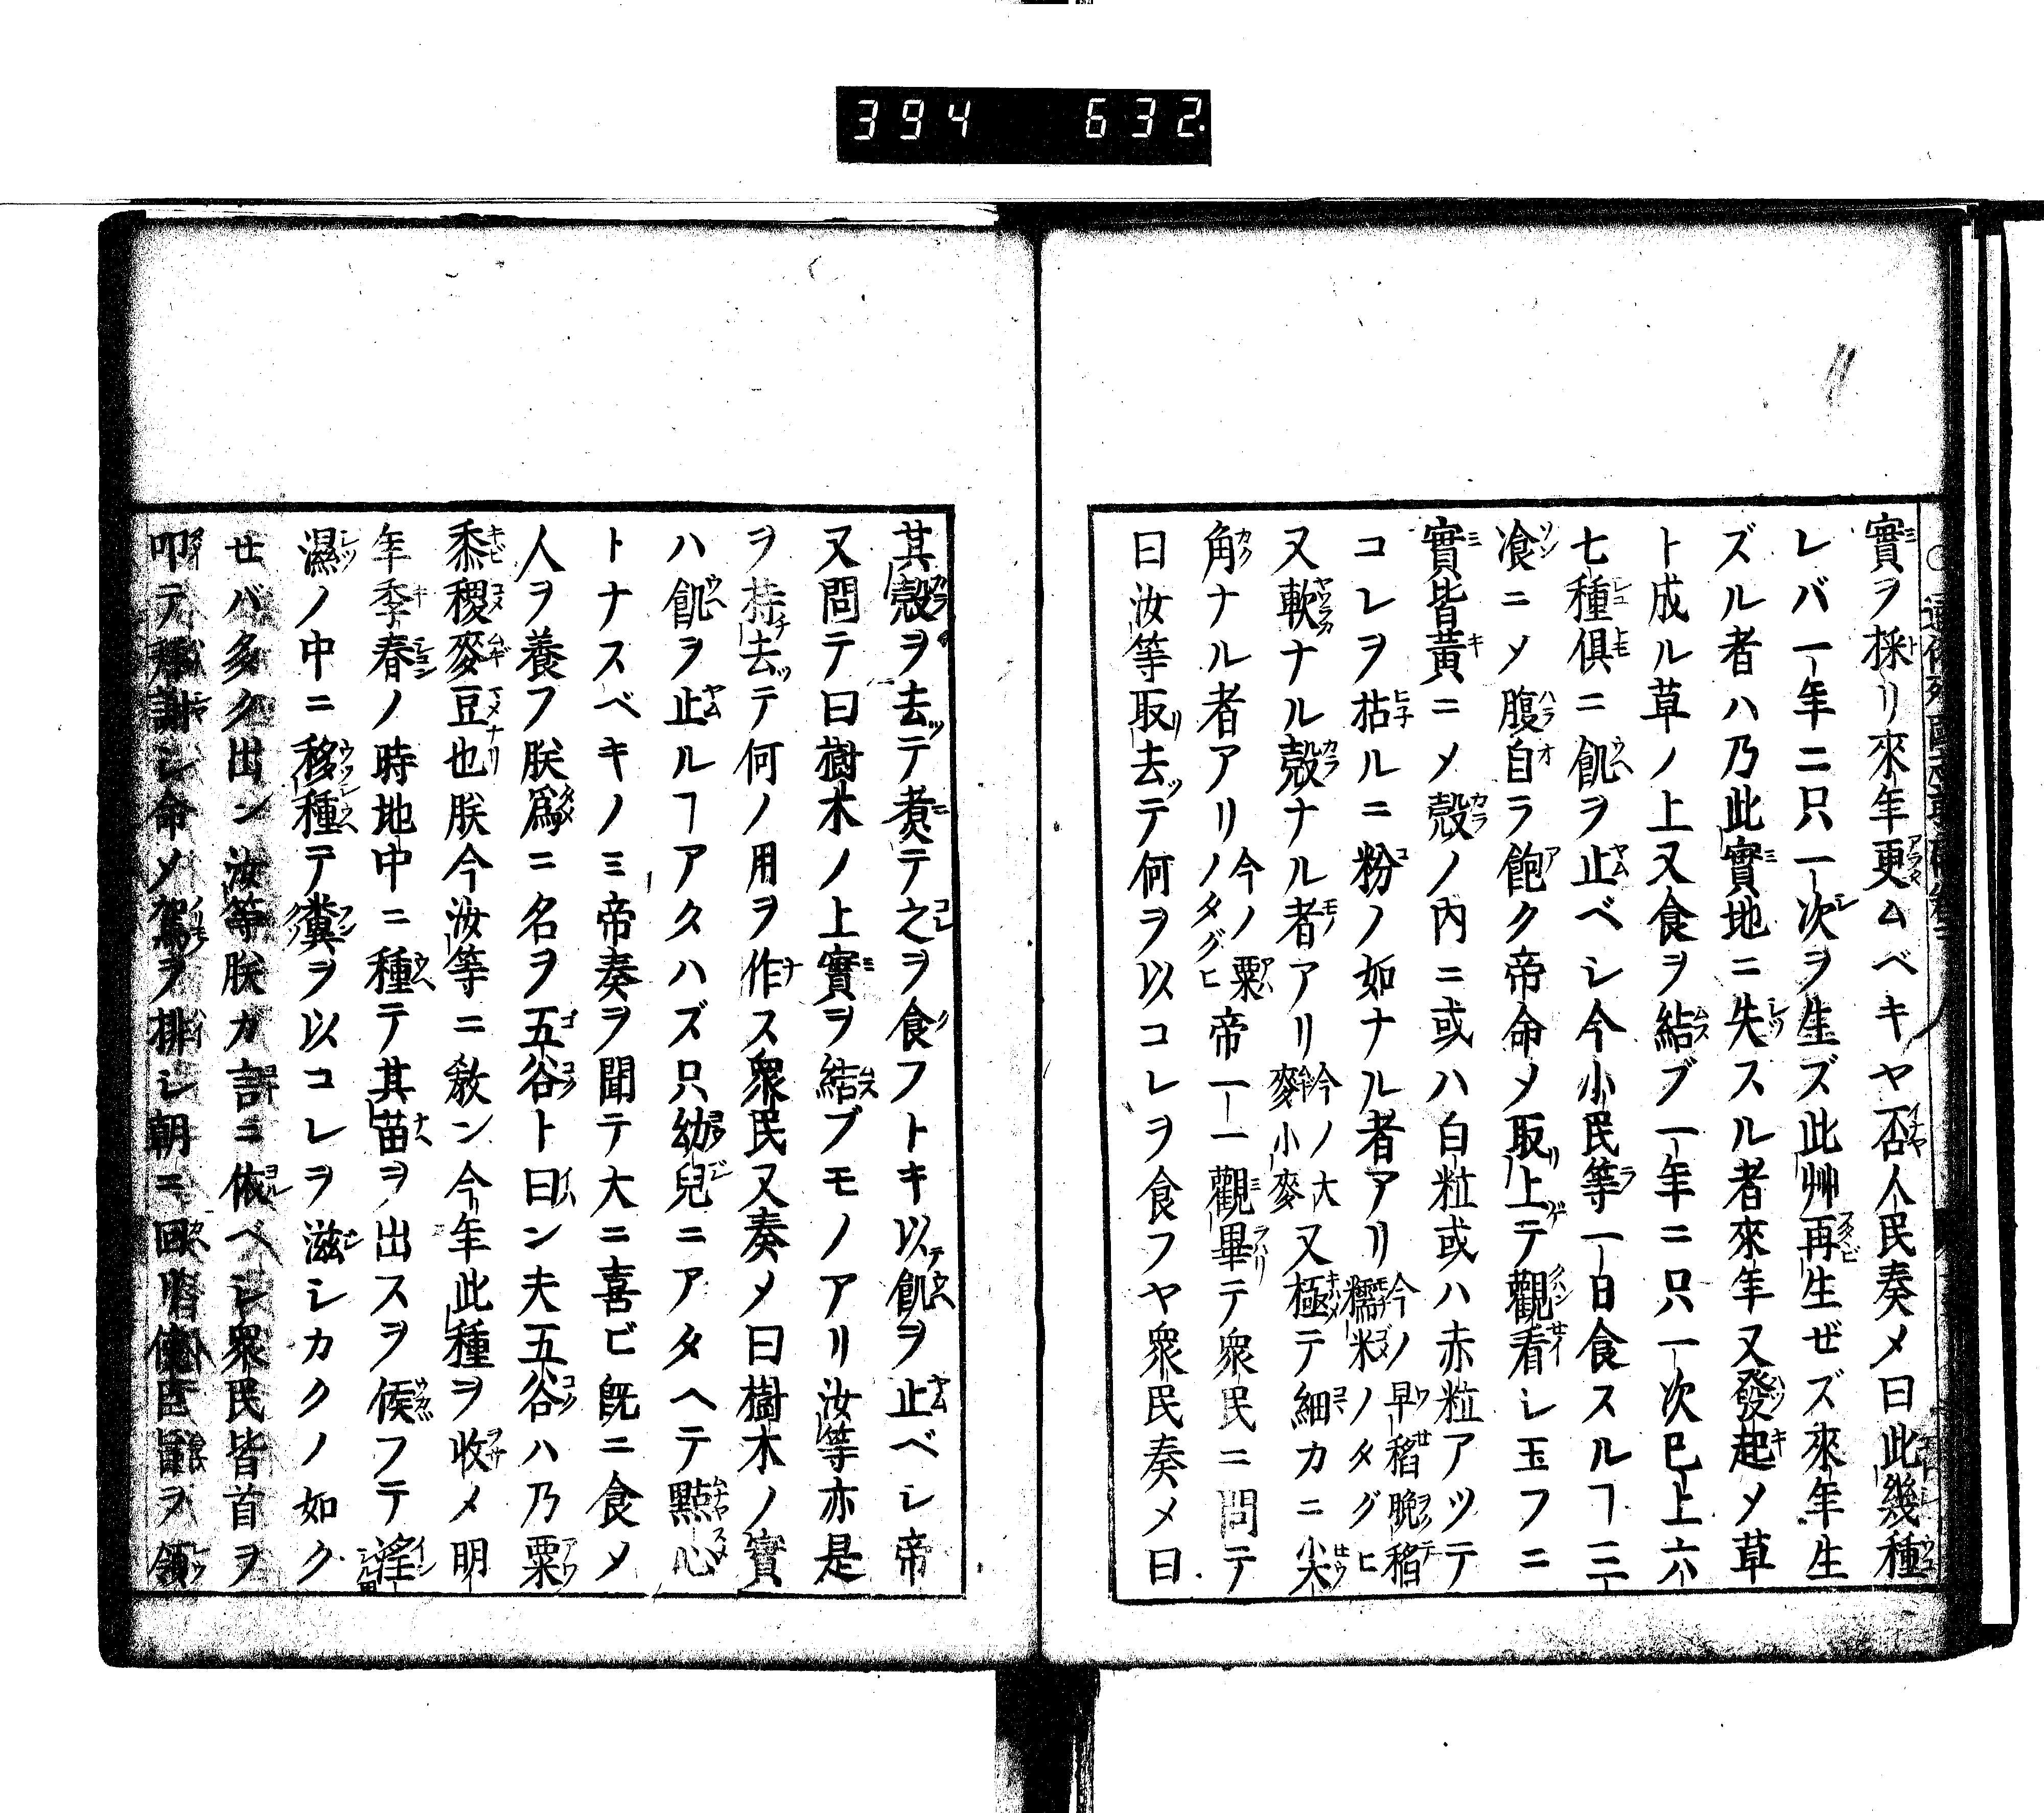 394 632
實ヲ採リ來年更ムベキヤ否人民奏メ曰此幾種
レバ一年ニ只一次ヲ生ズ此艸再生ゼズ來年生
ズル者ハ乃此實地ニ失スル者來年又發起メ草
ト成ル草ノ上又食ヲ結ブ一年ニ只一次已上六
七種俱ニ飢ヲ止ベシ今小民等一日食スルヿ三
飡ニメ腹自ラ飽ク帝命メ取上テ觀看シ玉フニ
實皆黄ニメ殼ノ内ニ或ハ白粒或ハ赤粒アツテ
コレヲ枯ルニ粉ノ如ナル者アリ今ノ早稻晩稻糯米ノタグヒ
又軟ナル殼ナル者アリ今ノ大麥小麥又極テ細カニ尖
角ナル者アリ今ノ粟ノタグヒ帝一一觀畢テ衆民ニ問テ
曰汝等取去テ何ヲ以コレヲ食フヤ衆民奏メ曰
其殼ヲ去テ煑テ之ヲ食フトキ以飢ヲ止ベシ帝
又問テ曰樹木ノ上實ヲ結ブモノアリ汝等亦是
ヲ持去テ何ノ用ヲ作ス衆民又奏メ曰樹木ノ實
ハ飢ヲ止ルヿアタハズ只幼兒ニアタヘテ點心
トナスベキノミ帝奏ヲ聞テ大ニ喜ビ既ニ食メ
人ヲ養フ朕爲ニ名ヲ五谷ト曰ン夫五谷ハ乃粟
黍稷麥豆也朕今汝等ニ敎ン今年此種ヲ收メ明
年季春ノ時地中ニ種テ其苗ヲ出スヲ候フテ淫
濕ノ中ニ移種テ糞ヲ以コレヲ滋シカクノ如ク
せバ多ク出ン汝等朕カ言ニ依ベシ衆民皆首ヲ
叩テ拜謝シ命メ駕ヲ排シ朝ニ回リ羣臣旨ヲ領